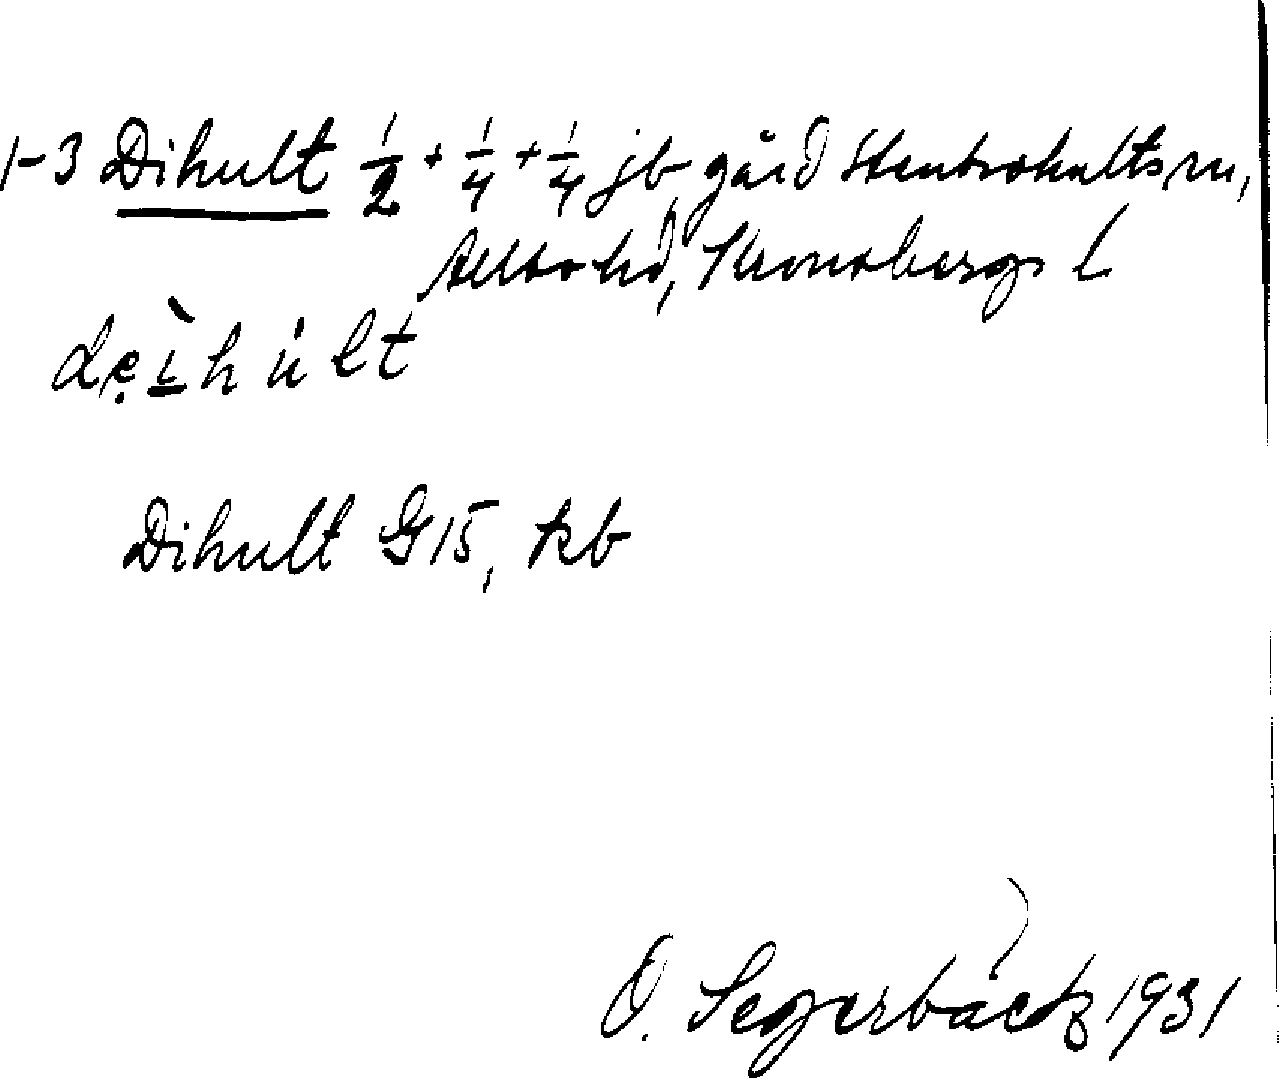 1-3 Dihult 1/2 + 1/4 + 1/4 jb, gård Stenbrohults sn,
Allbo hd, Kronobergs l
dẹìhult
Dihult G15, kb
O. Segerbäck 1931